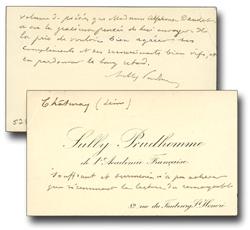 volume de poésies que Madame Alphonse Daudet
a eu la gracieuse pensée de lui envoyer. Il
la prie de vouloir bien agréer ses
compliments et ses remerciements bien vifs, et
en pardonner le long retard.
Sully Prudhomme
Châtenay (Seine)
Sully Prudhomme
de l'Académie Française
souffrant et surmené n'a pu achever
que récemment la lecture du remarquable
82 rue du Faubourg St Honoré